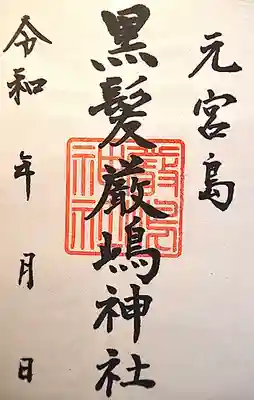 元宮島
黒髪厳嶋神社
令和 年 月 日